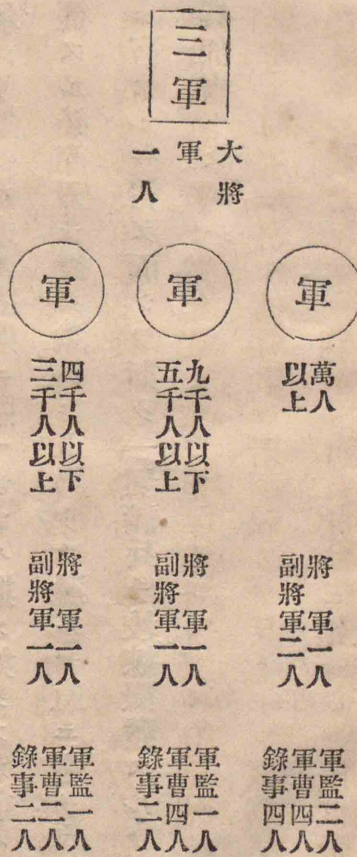 三軍
大將
軍
一人
軍
萬人
以上
將軍一人
副將軍二人
軍監二人
軍曹四人
錄事四人
軍
九千人以下
五千人以上
將軍一人
副將軍一人
軍監一人
軍曹四人
錄事二人
軍
四千人以下
三千人以上
將軍一人
副將軍一人
軍監一人
軍曹二人
錄事二人